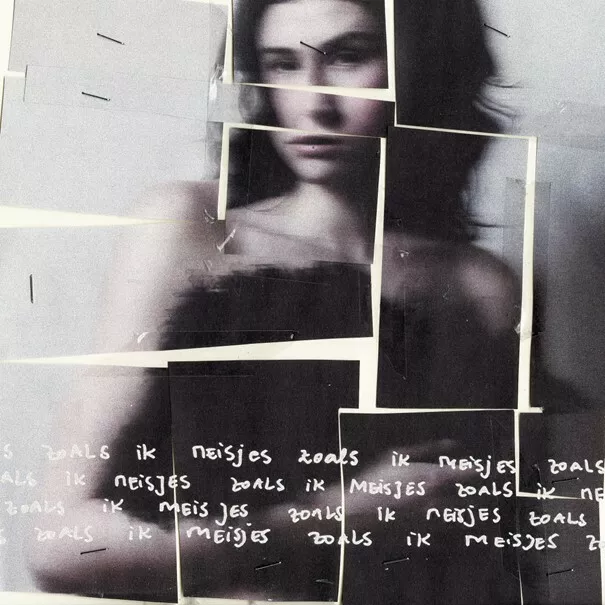 S ZOALS IK MEISJES ZOALS IK MEISJES ZOALS
ALS IK MEISJES ZOALS IK MEISJES ZOALS IK ME
ZOALS IK MEISJES ZOALS IK MEISJES ZOALS
S ZOALS IK MEISJES ZOALS IK MEISJES ZO